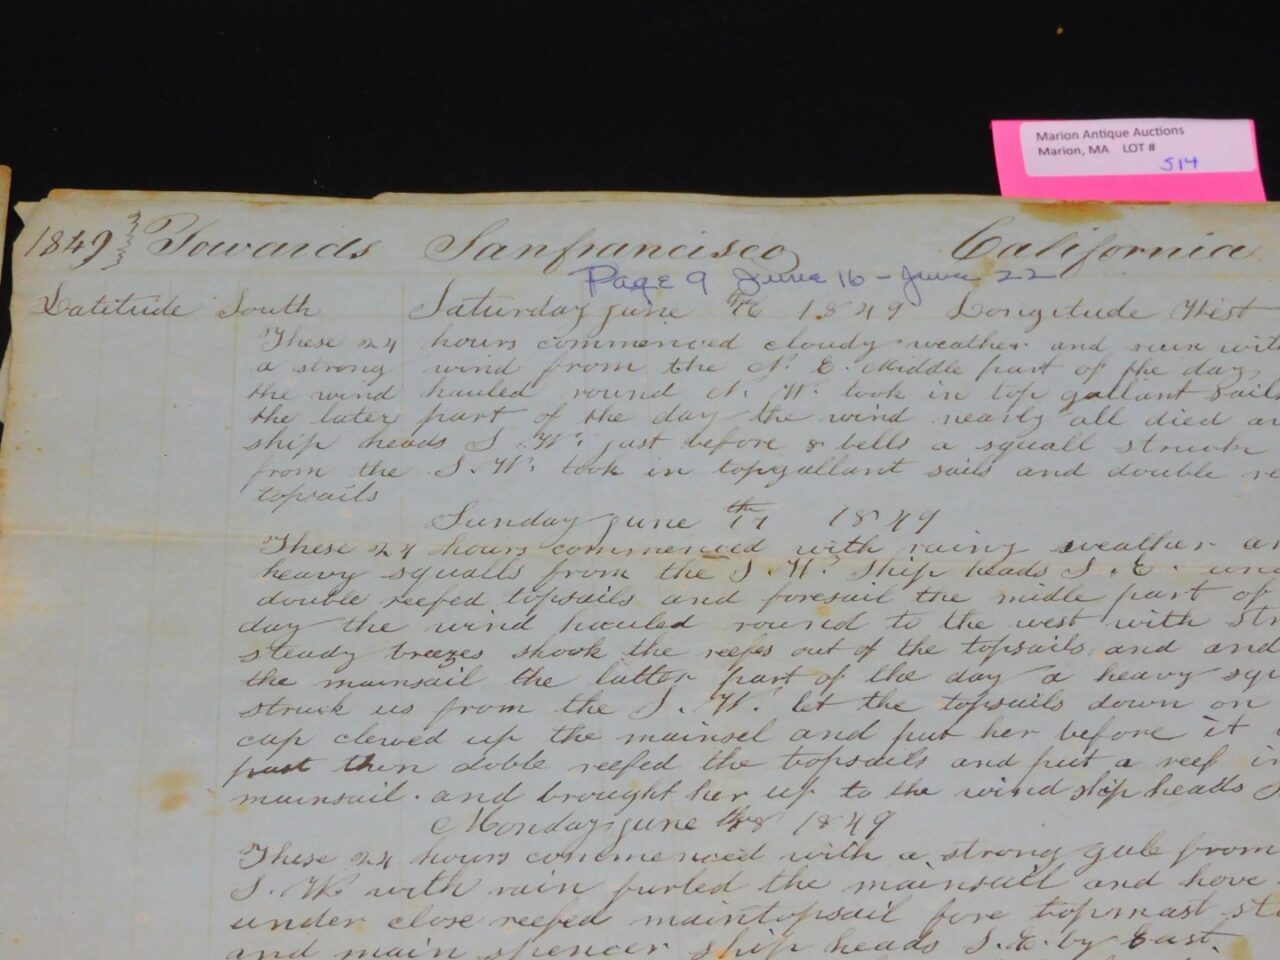 Marion Antique Auctions
Marion, MA LOT #
514
1849 Towards Sanfrancisco California
Page 9 June 16 - June 22
Latitude South Saturday june th 16 1849 Longitude West
These 24 hours commenced cloudy weather and rain with
a strong wind from the N. E. Middle part of the day
the wind hauled round N. W. took in top gallant sails
the later part of the day the wind nearly all died
ship heads S. W. just before 8 bells a squall struck
from the S. W. took in topgallant sails and double
topsails
Sunday june th 17 1849
These 24 hours commenced with rainy weather
heavy squalls from the S. W. Ship heads S. E.
double reefed topsails and foresail the midle part of
day the wind hauled round to the west with
steady breezes shook the reefes out of the topsails and
the mainsail the latter part of the day a heavy
struck us from the S. W. let the topsails down on
cap clewed up the mainsel and put her before it
past then doble reefed the topsails and put a reef
mainsail. and brought her up to the wind ship heads
Monday june th 18 1849
These 24 hours commenced with a strong gale from
S. W. with rain furled the mainsail and hove
under close reefed maintopsail fore topmast
and main spencer ship heads S. E. by East.